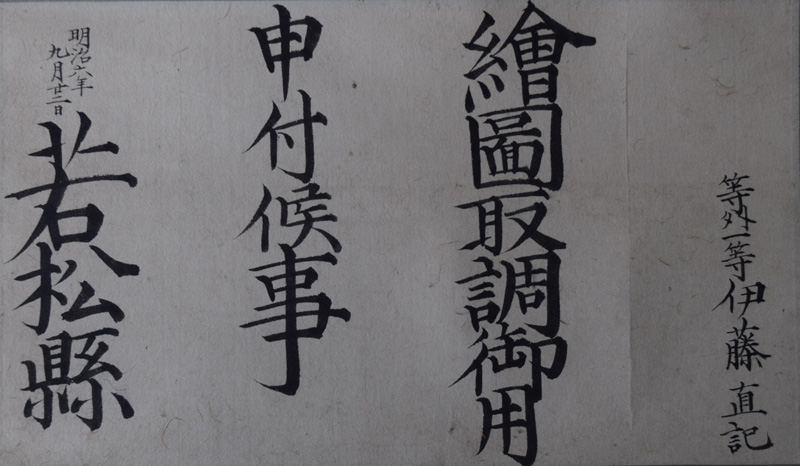 等外一等伊藤直記
繪圖取調御用
申付候事
明治六年
九月廿二日
若松縣